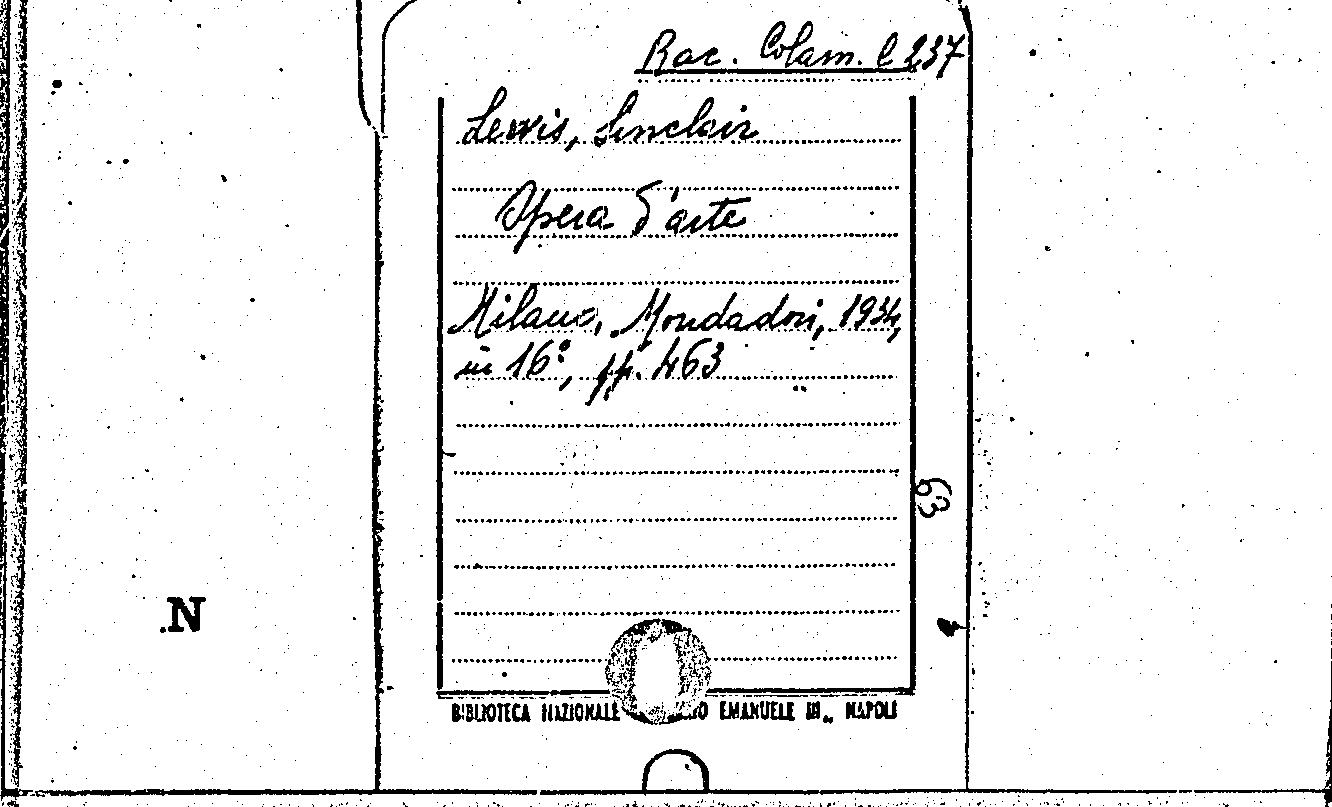 Rac. Colam. C 237
Lewis, Sinclair
Opera d'arte
Milano, Mondadori, 1934,
in 16°, pp. 463
63
N
BIBLIOTECA NAZIONALE EMANUELE III„ NAPOLI